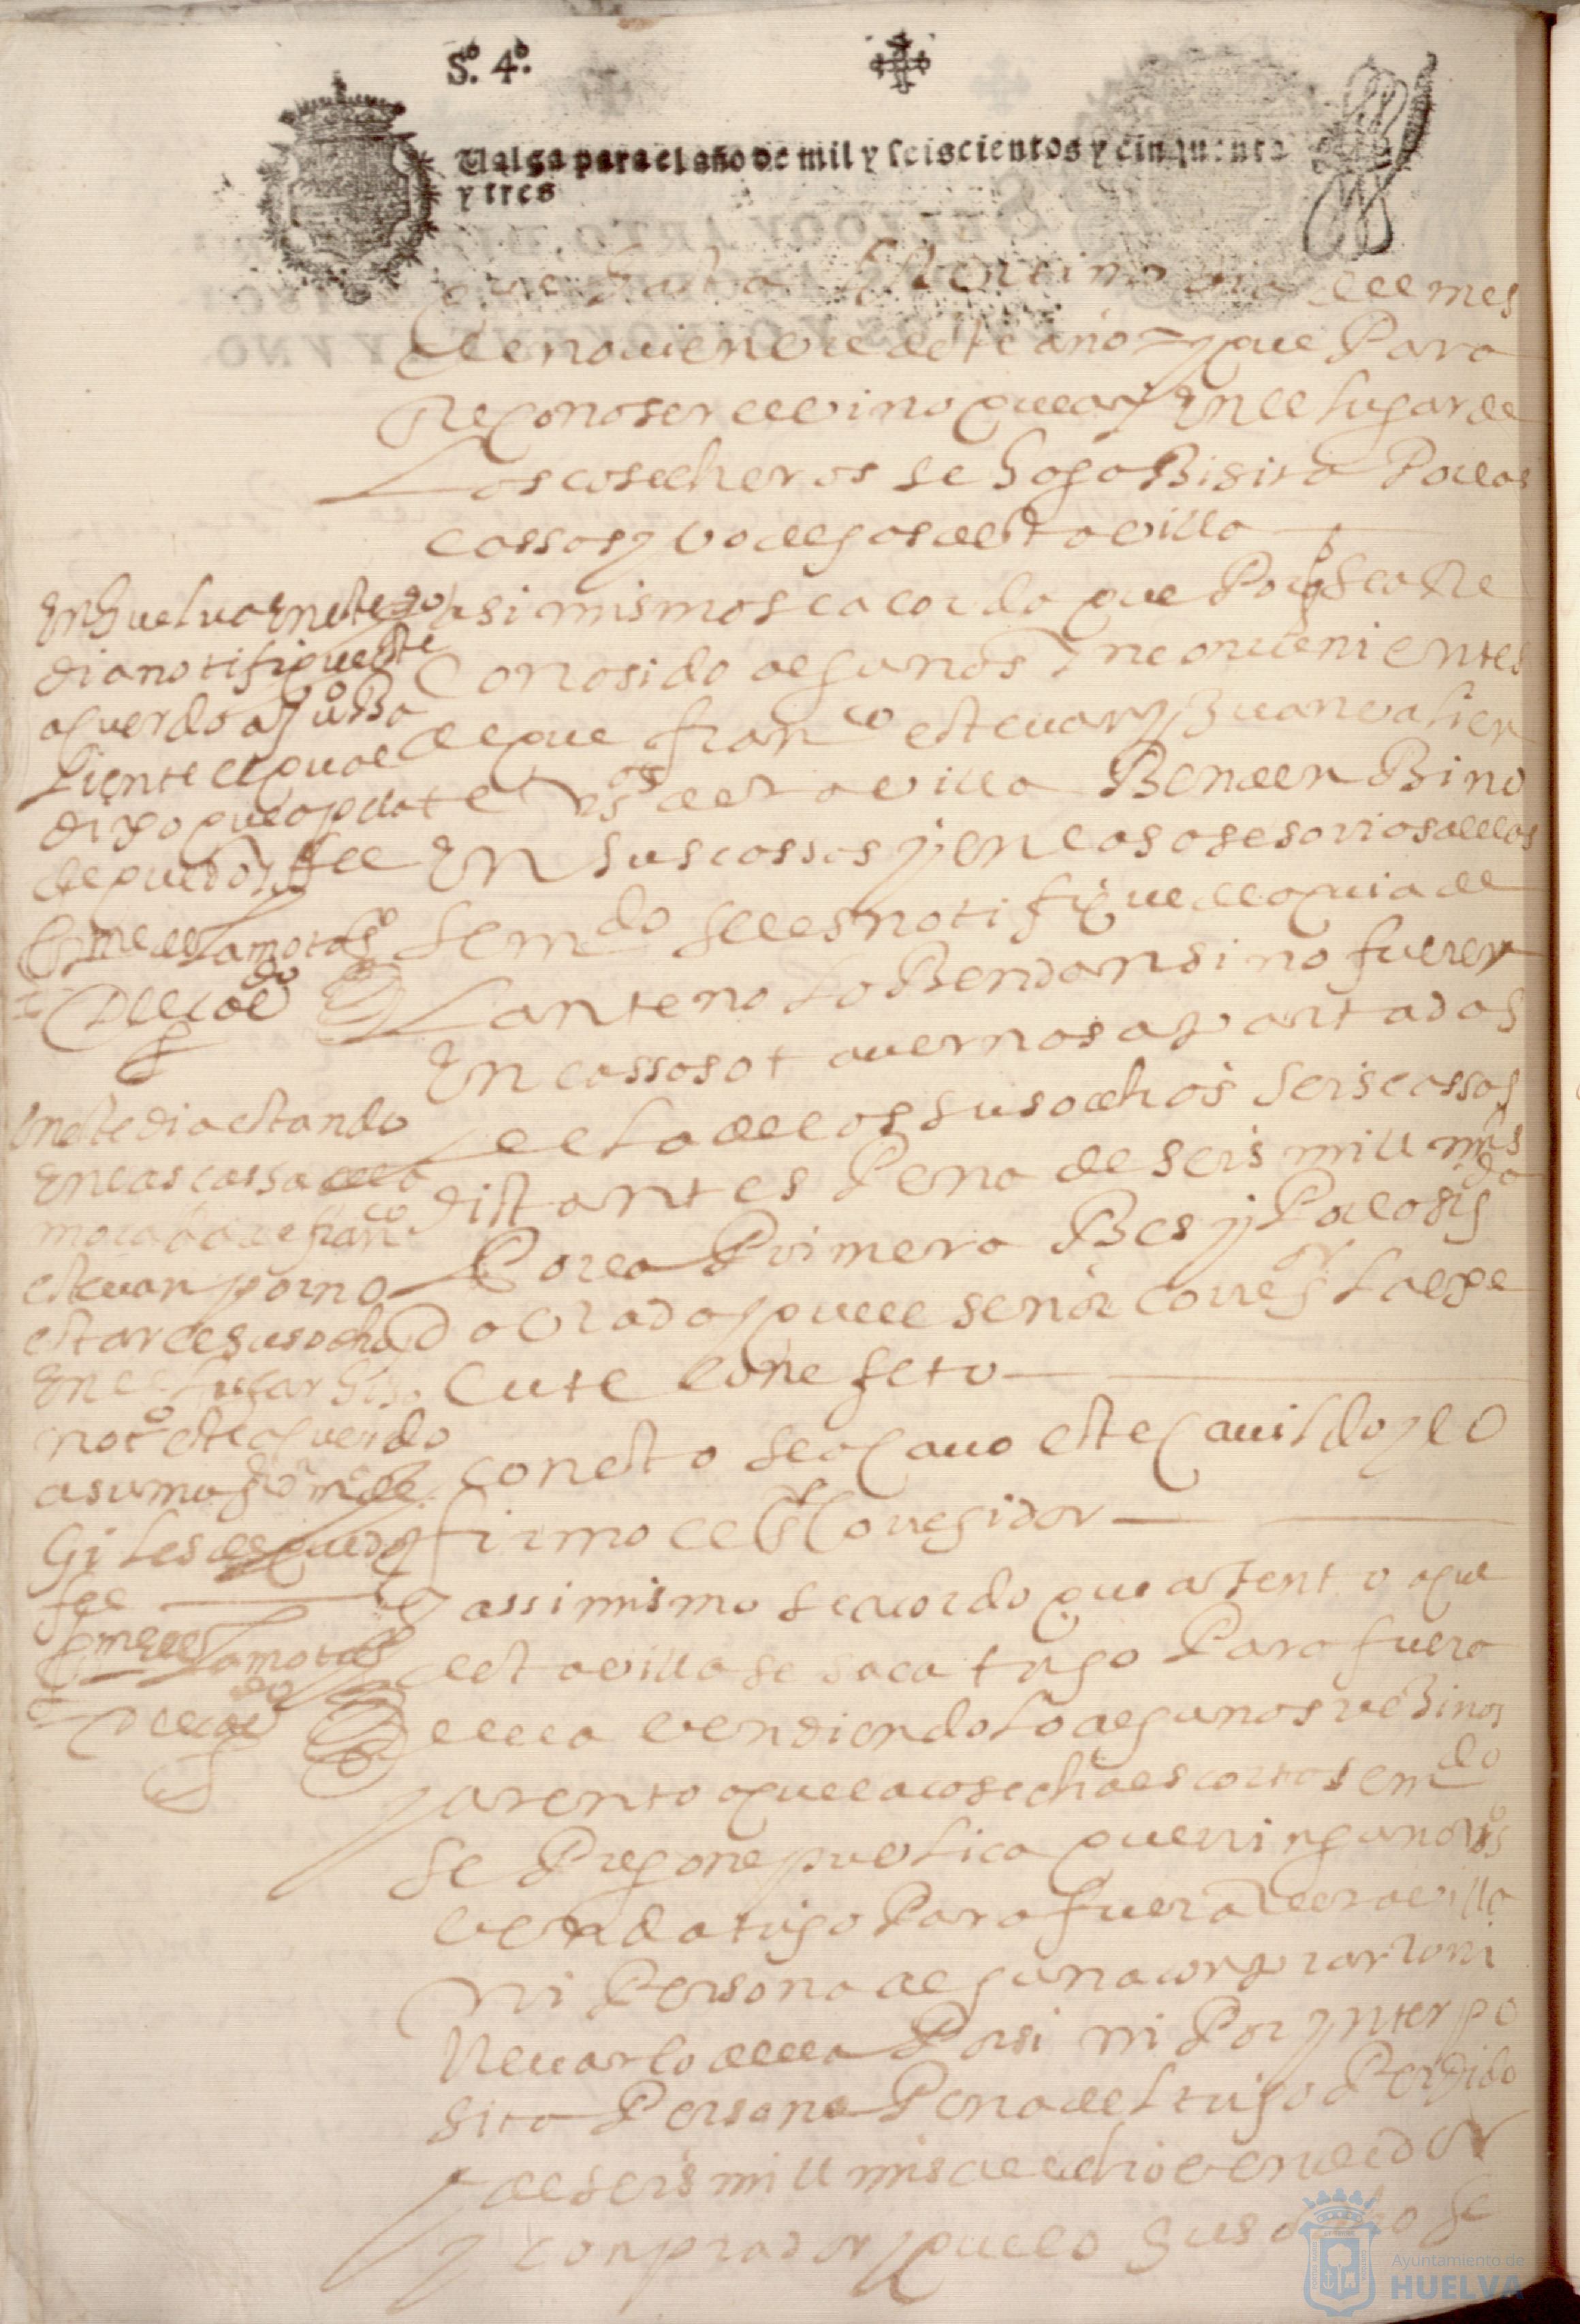 Sº. 4º.
Valga para el año de mil y seiscientos y cinquenta
y tres
que hasta del mes
de noviembre deste año = y que Para
Reconoser el vino que ay En el lugar de
Los cosecheros se haga Bisita Por las
cassas y bodegas desta villa
asi mismo se acordo que Por q̃ sea Re
conosido algunos Inconvenientes
de que franco estevan y Juan
vos desta villa Benden Bino
En sus cassas y en las asesorias dellas
se mdo se les notifique de aqui ade
Lante no lo Bendan si no fuere
En cassas o tavernas apartadas
de la de los susodchos seis cassas
distantes Pena de seis mill mrs
Por la Primera Bes y Por la sigda
doblado y que el señor Corregor la exe
cute con efeto
con esto se acavo este Cavildo y lo
firmo el Sr Corregidor
y assimismo se acordo que atento a que
desta villa se saca trigo Para fuera
della vendiendolo algunos veSinos
y atento a que la cosecha es corta se mdo
se Pregone publica que ningano vo
venda trigo Para fuera desta villa
ni Persona alguna conprarlo ni
llevarlo della Por si ni Por ynterpo
sita Persona Pena del trigo Perdido
y de seis mill mrs al dcho vendedor
y conprador y que lo susodcho se
En huelva En este
dia notifique este
acuerdo a Juo Ba
liente el qual
dixo que
de que doy fee
En este dia estando
En las cassa de la
morada de franco
estevan y por no
estar el susodcho
En el lugar hise
noto este acuerdo
a su muger
Giles de que doy
fee
Ayuntamiento de
HUELVA